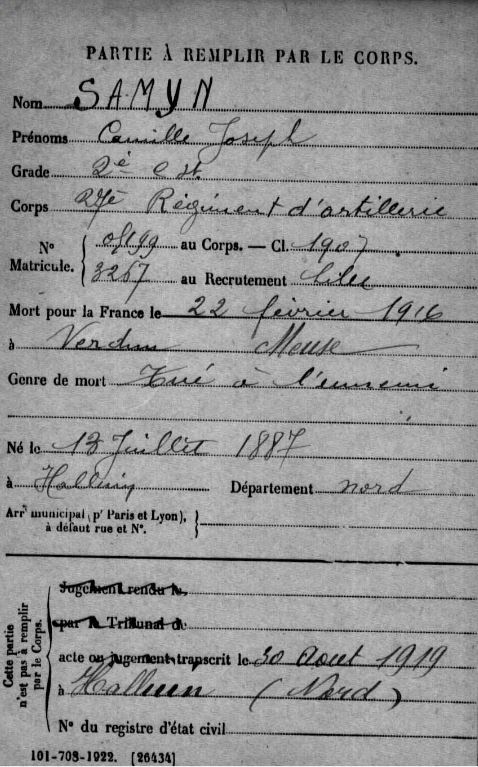 PARTIE À REMPLIR PAR LE CORPS.
Nom SAMYN
Prénoms Camille Joseph
Grade 2è
Corps 27è Régiment d'artillerie
N° Matricule. au Corps. — Cl. 1907
3267 au Recrutement Lille
Mort pour la France le 22 février 1916
à Verdun Meuse
Genre de mort Tué à l'ennemi
Né le 13 Juillet 1887
à Halluin Département Nord
Arrt municipal (pr Paris et Lyon),
à défaut rue et N°.
Cette partie n'est pas à remplir par le Corps.
Jugement rendu le
par le Tribunal de
acte ou jugement transcrit le 30 Aout 1919
à Halluin (Nord)
N° du registre d'état civil
101-708-1922. [26434]